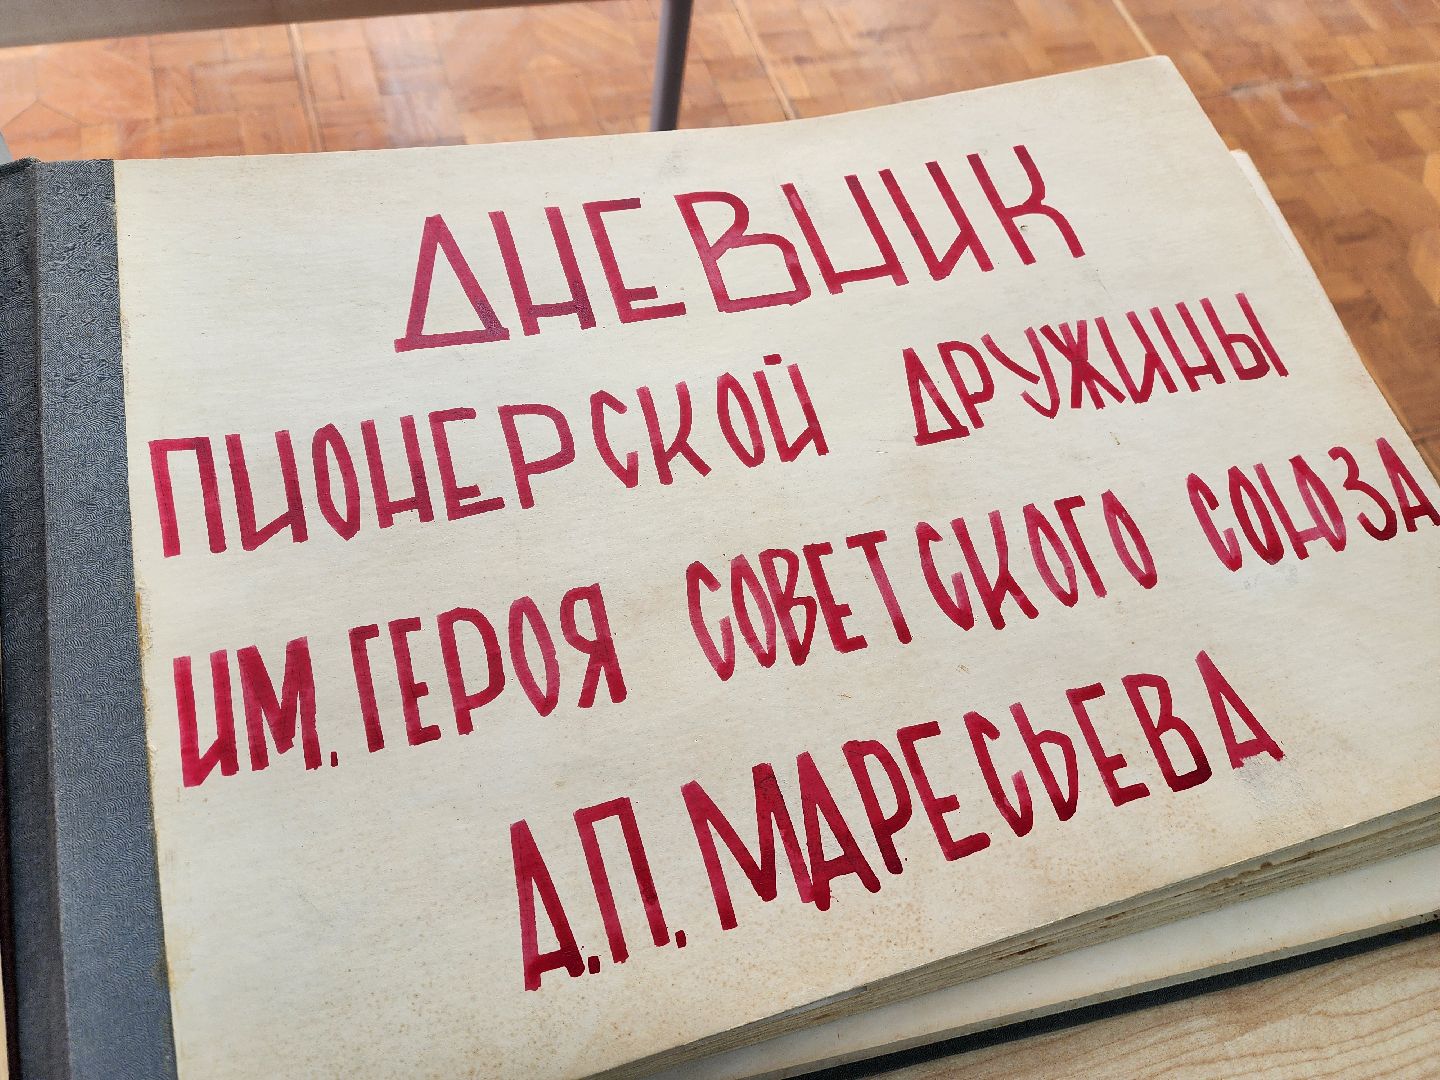 ДНЕВНИК
ПИОНЕРСКОЙ ДРУЖИНЫ
ИМ. ГЕРОЯ СОВЕТСКОГО СОЮЗА
А.П. МАРЕСЬЕВА